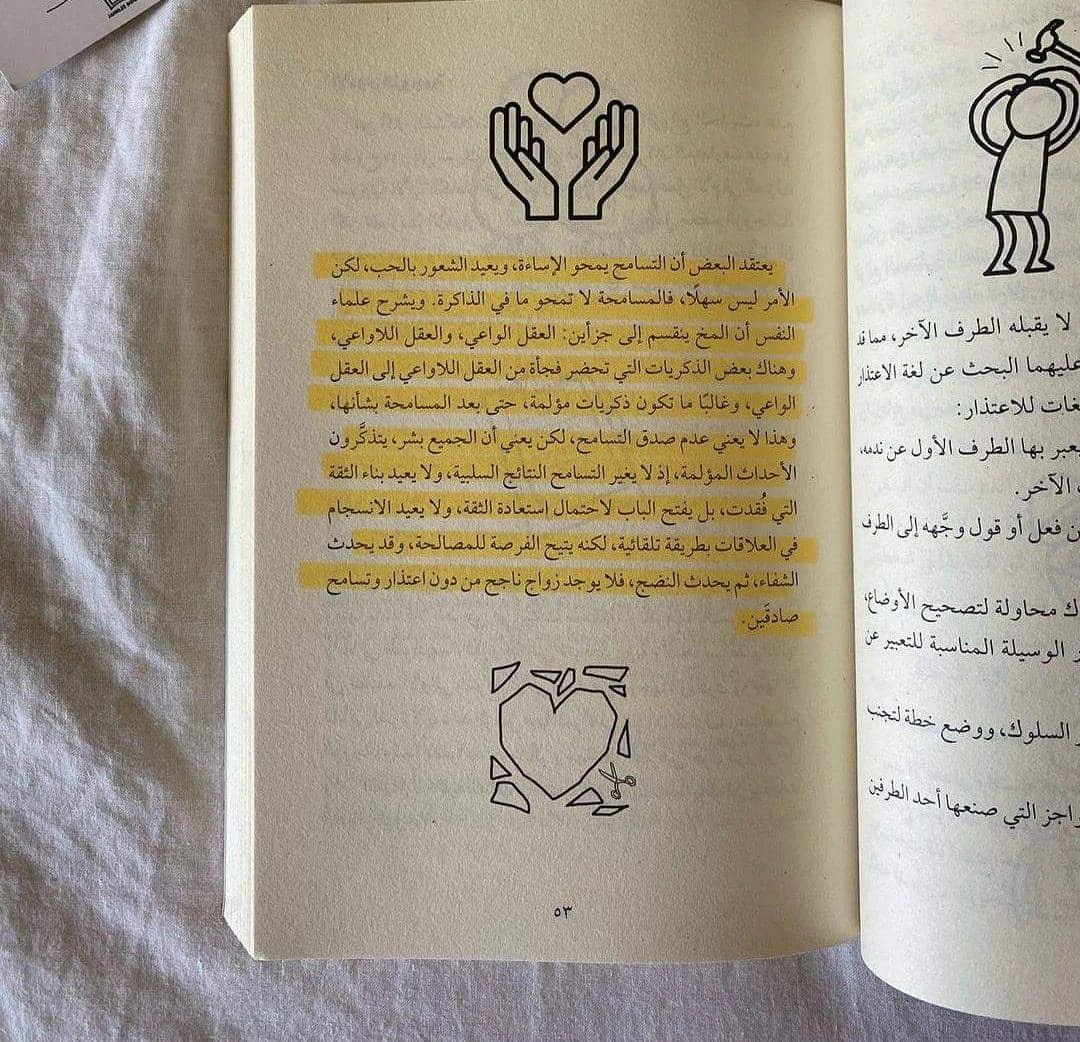 يعتقد البعض أن التسامح يمحو الإساءة، ويعيد الشعور بالحب، لكن
الأمر ليس سهلًا، فالمسامحة لا تمحو ما في الذاكرة. ويشرح علماء
النفس أن المخ ينقسم إلى جزأين: العقل الواعي، والعقل اللاواعي،
وهناك بعض الذكريات التي تحضر فجأة من العقل اللاواعي إلى العقل
الواعي، وغالبًا ما تكون ذكريات مؤلمة، حتى بعد المسامحة بشأنها،
وهذا لا يعني عدم صدق التسامح، لكن يعني أن الجميع بشر، يتذكَّرون
الأحداث المؤلمة، إذ لا يغير التسامح النتائج السلبية، ولا يعيد بناء الثقة
التي فُقدت، بل يفتح الباب لاحتمال استعادة الثقة، ولا يعيد الانسجام
في العلاقات بطريقة تلقائية، لكنه يتيح الفرصة للمصالحة، وقد يحدث
الشفاء، ثم يحدث النضج، فلا يوجد زواج ناجح من دون اعتذار وتسامح
صادقَين.
٥٣
لا يقبله الطرف الآخر، مما قد
عليهما البحث عن لغة الاعتذار
غات للاعتذار:
يعبر بها الطرف الأول عن ندمه،
الآخر.
ن فعل أو قول وجَّهه إلى الطرف
ك محاولة لتصحيح الأوضاع،
ر الوسيلة المناسبة للتعبير عن
ر السلوك، ووضع خطة لتجنب
واجز التي صنعها أحد الطرفين